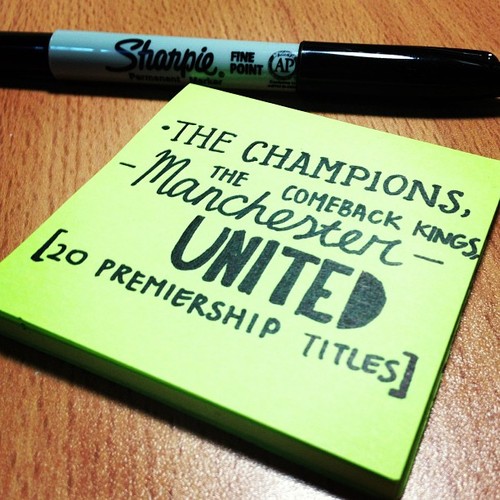 Sharpie.
FINE POINT
Permanent Marker
AP
•THE CHAMPIONS,
THE COMEBACK KINGS,
-Manchester-
UNITED
[20 PREMIERSHIP TITLES]